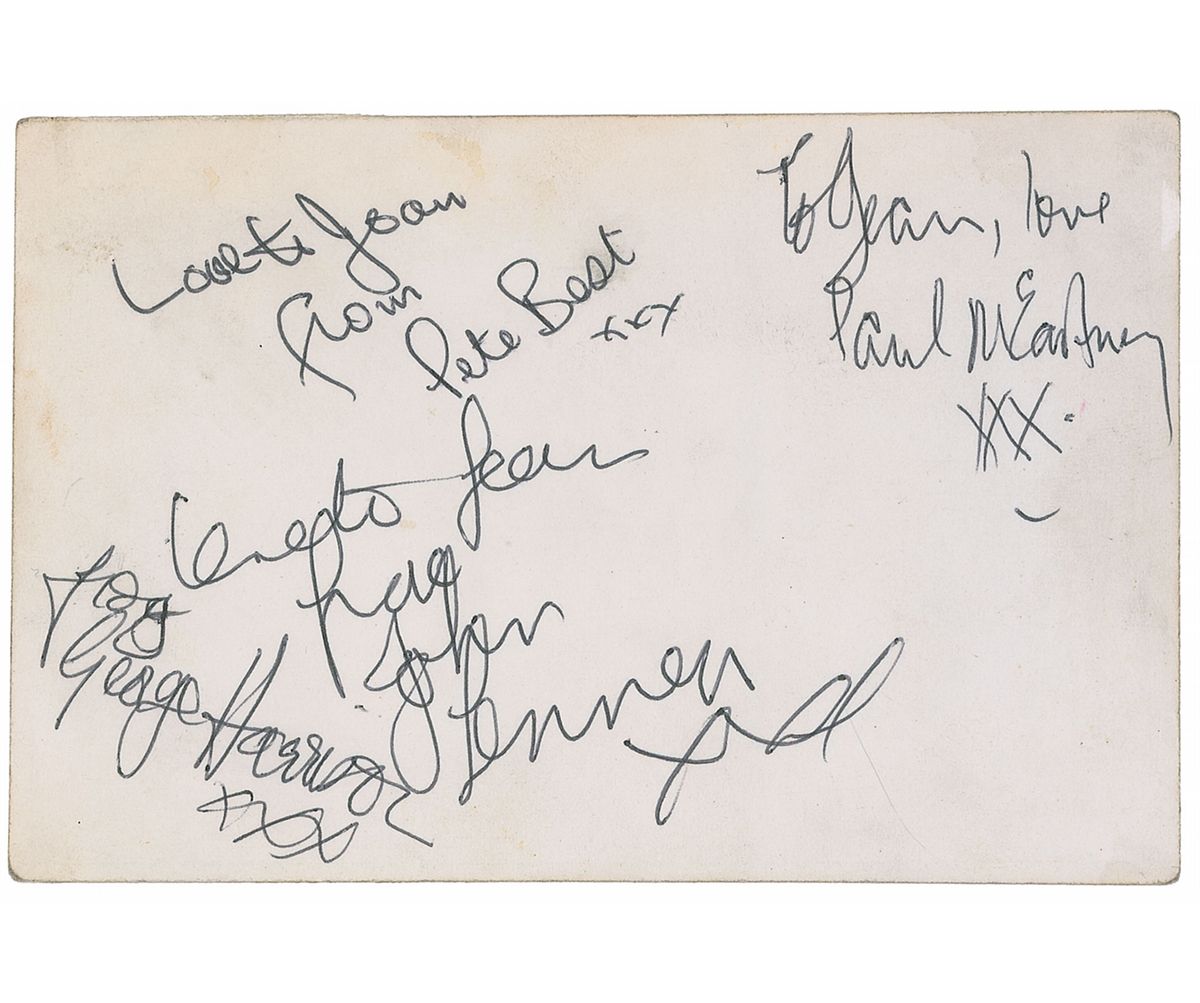 Love to Joan
from
Pete Best
xxx
To Jean, love
Paul McCartney
XXX.
Love to Jean
from
John
Lennon
xxx
from
George Harrison
xxx